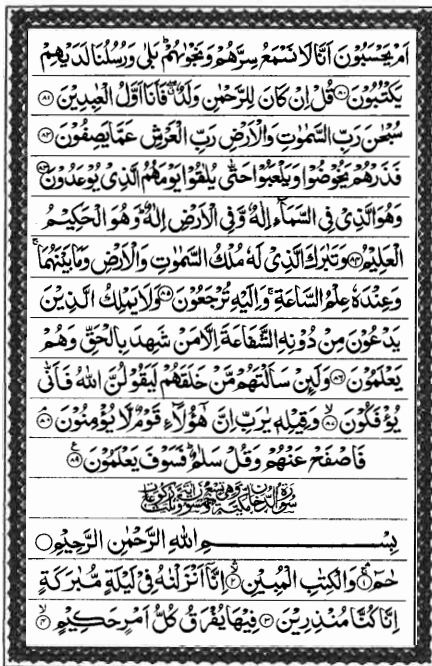 اَمۡ يَحۡسَبُوۡنَ اَنَّا لَا نَسۡمَعُ سِرَّهُمۡ وَنَجۡوٰٮهُمۡؕ بَلٰى وَرُسُلُنَا لَدَيۡهِمۡ
يَكۡتُبُوۡنَ ﴿۸۰﴾ قُلۡ اِنۡ كَانَ لِلرَّحۡمٰنِ وَلَدٌ ۖ فَاَنَا اَوَّلُ الۡعٰبِدِيۡنَ ﴿۸۱﴾
سُبۡحٰنَ رَبِّ السَّمٰوٰتِ وَالۡاَرۡضِ رَبِّ الۡعَرۡشِ عَمَّا يَصِفُوۡنَ ﴿۸۲﴾
فَذَرۡهُمۡ يَخُوۡضُوۡا وَيَلۡعَبُوۡا حَتّٰى يُلٰقُوۡا يَوۡمَهُمُ الَّذِىۡ يُوۡعَدُوۡنَ ﴿۸۳﴾
وَهُوَ الَّذِىۡ فِى السَّمَآءِ اِلٰهٌ وَّفِى الۡاَرۡضِ اِلٰهٌ ؕ وَهُوَ الۡحَكِيۡمُ
الۡعَلِيۡمُ ﴿۸۴﴾ وَتَبٰرَكَ الَّذِىۡ لَهٗ مُلۡكُ السَّمٰوٰتِ وَالۡاَرۡضِ وَمَا بَيۡنَهُمَا ۚ
وَعِنۡدَهٗ عِلۡمُ السَّاعَةِ ۚ وَاِلَيۡهِ تُرۡجَعُوۡنَ ﴿۸۵﴾ وَلَا يَمۡلِكُ الَّذِيۡنَ
يَدۡعُوۡنَ مِنۡ دُوۡنِهِ الشَّفَاعَةَ اِلَّا مَنۡ شَهِدَ بِالۡحَقِّ وَهُمۡ
يَعۡلَمُوۡنَ ﴿۸۶﴾ وَلَٮِٕنۡ سَاَلۡتَهُمۡ مَّنۡ خَلَقَهُمۡ لَيَقُوۡلُنَّ اللّٰهُ فَاَنّٰى
يُؤۡفَكُوۡنَ ﴿۸۷﴾ وَقِيۡلِهٖ يٰرَبِّ اِنَّ هٰٓؤُلَاۤءِ قَوۡمٌ لَّا يُؤۡمِنُوۡنَ ﴿۸۸﴾
فَاصۡفَحۡ عَنۡهُمۡ وَقُلۡ سَلٰمٌؕ فَسَوۡفَ يَعۡلَمُوۡنَ ﴿۸۹﴾
بِسۡمِ اللّٰهِ الرَّحۡمٰنِ الرَّحِيۡمِ
حٰمٓ ﴿۱﴾ وَالۡكِتٰبِ الۡمُبِيۡنِ ﴿۲﴾ اِنَّاۤ اَنۡزَلۡنٰهُ فِىۡ لَيۡلَةٍ مُّبٰرَكَةٍ
اِنَّا كُنَّا مُنۡذِرِيۡنَ ﴿۳﴾ فِيۡهَا يُفۡرَقُ كُلُّ اَمۡرٍ حَكِيۡمٍ ﴿۴﴾